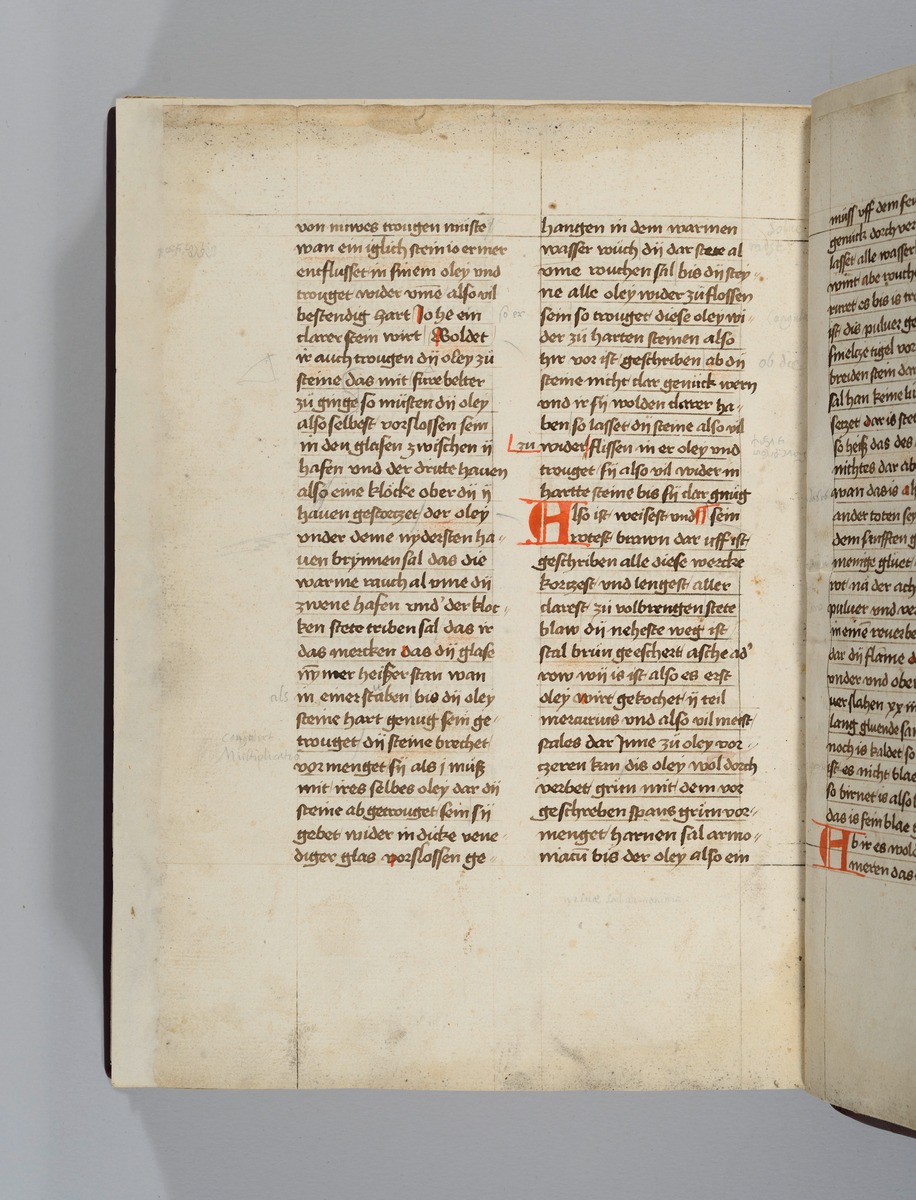 von nuwes trougen muste
wan ein iglich stein io er mer
entflusset in sinem oley vnd
trouget wider vme also vil
bestendig hart Jo he ein
clarer stein wirt Woldet
ir auch trougen dij oley zu
steine das mit fure belter
zu ginge so musten dij oley
also selbest vorslossen sein
in den glasen zwischen ij
hafen vnd der drute hauen
also eine klocke ober dij ij
hauen gestortzet der oley
vnder deme nydersten ha-
uen brynnen sal das die
warme rauch al vme dij
zwene hafen vnd der kloc-
ken stete triben sal das ir
das mercken das dij glase
nymer heißer stan wan
in einer staben bis dij oley
steine hart genug sein ge-
trouget dij steine brechet
vor menget sij als j muß
mit ires selbes oley dar dij
steine ab getrouget sein sij
gebet wider in dicke vene-
diger glas vorslossen ge-
als
hangen in dem warmen
wasser wuch dij dar stete al
vme rouchen sal bis dij stey-
ne alle oley wider zu flossen
sein so trouget diese oley wi-
der zu harten steinen also
hir vor ist geschriben ab dij
steine nicht clar genuck wern
vnd ir sij wolden clarer ha-
ben so lasset dij steine also vil
zu wider flissen in er oley vnd
trouget sij also vil wider in
hartte steine bis sij clar gnug
Also ist weisest vnd sein
rotest brawn dar uff ist
geschriben alle diese wercke
kortzest vnd lengest aller
clarest zu volbrengen stete
blaw dij neheste weg ist
stal brun gee schert asche ad'
row wij is ist also es erst
oley wirt gekochet ij teil
mercurius vnd also vil meist
stales dar Jnne zu oley vor-
tzeren kan dis oley wol dorch
verbet grun mit dem vor
geschreben spans grun vor-
menget harnen sal armo-
niacu bis der oley also ein
muss vff dem feu
genuck dorch ver
lasset alle wasser
wirt abe rouche
ruret es bis is tro
ist dis puluer ge
smeltze tigel vor
breiden stein dar
sal han keine lu
setzet dar is stet
so heiß das des
nichtes dar ab
wan das is al
ander toten sey
dem sanfften g
menige gluet
rot na der ach
puluer vnd ve
in eine reuerbe
dar dij flame d
vnder vnd ober
uer slahen xx iii
lang gluende san
noch is kaldet so
ist es nicht blae
so birnet is also l
das is sein blae
Ab ir es wold
meren das